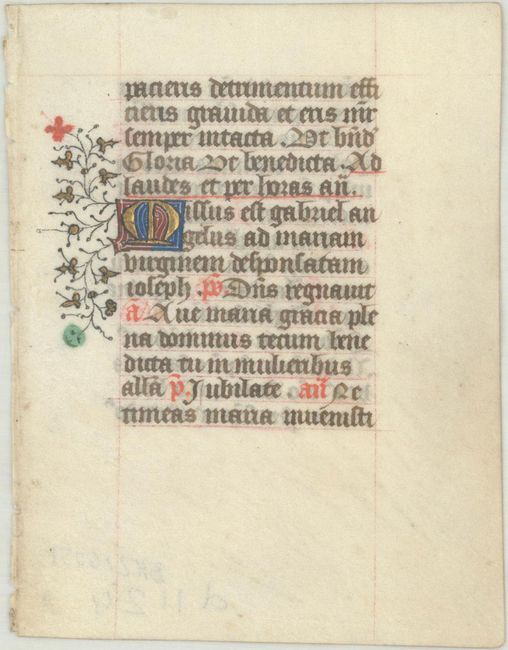 pacieris detrimentum effi
cieris gravida et eris mr̄
semper intacta . Ut bn̄d
Gloria Ut benedicta . Ad
laudes et per horas an̄.
Missus est gabriel an
gelus ad mariam
virginem desponsatam
ioseph . ps̄ Dn̄s regnavit
a Ave maria gracia ple
na dominus tecum bene
dicta tu in mulieribus
allā p̄. Jubilate an̄ Ne
timeas maria invenisti